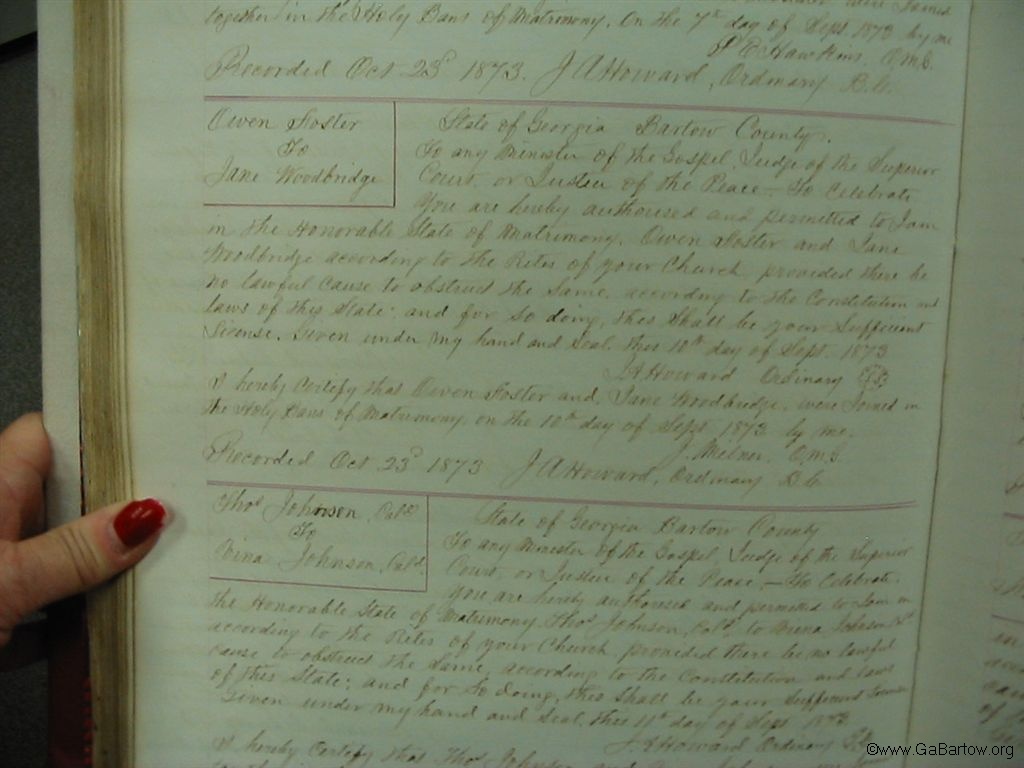 together in the Holy Bans of Matrimony. On the 7th day of Sept 1873 by me
Hawkins, O.M.G.
Recorded Oct 23d 1873. J A Howard, Ordinary B.C.
Owen Foster
To
Jane Woodbridge
State of Georgia Bartow County.
To any Minister of the Gospel, Judge of the Superior
Court, or Justice of the Peace – to Celebrate
You are hereby authorised and permitted to Join
in the Honorable State of Matrimony. Owen Foster and Jane
Woodbridge according to the Rites of your Church provided there be
no lawful Cause to obstruct the Same, according to the Constitution and
laws of this State; and for So doing, this Shall be your Sufficient
License. Given under my hand and Seal, this 10th day of Sept. 1873
J A Howard Ordinary
I hereby Certify that Owen Foster and, Jane Woodbridge, were Joined in
the Holy Bans of Matrimony, on the 10th day of Sept 1873 by me.
J. Milner, O.M.G
Recorded Oct 23d 1873 J A Howard, Ordinary B.C
Thos Johnson, Cold
To
Johnson, Cold
State of Georgia Bartow County
To any Minister of the Gospel, Judge of the Superior
Court, or Justice of the Peace – to Celebrate.
You are hereby authorised and permitted to Join in
the Honorable State of Matrimony Thos Johnson, Cold, to Johnson Cd
according to the Rites of your Church provided there be no lawful
cause to obstruct the Same, according to the Constitution and laws
of this State; and for So doing, this Shall be your Sufficient License
Given under my hand and Seal, this 11th day of Sept. 1873
J A Howard Ordinary
I hereby Certify that Thos Johnson, and
©www.GaBartow.org